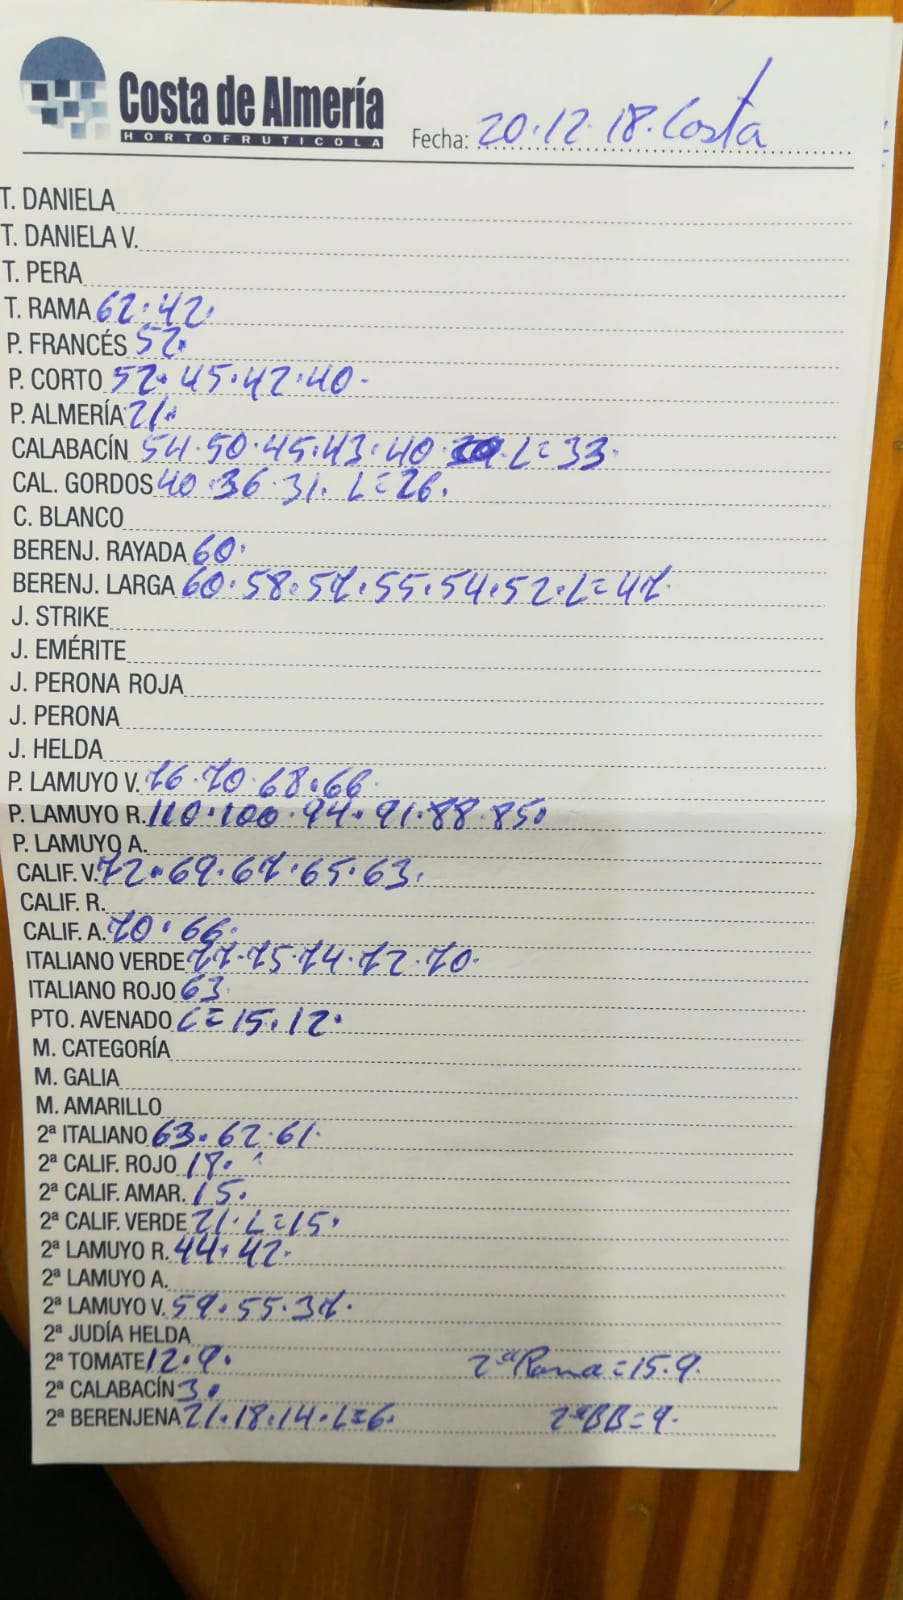 Costa de Almería
HORTOFRUTICOLA
Fecha: 20.12.18. Costa
T. DANIELA
T. DANIELA V.
T. PERA
T. RAMA 62.42.
P. FRANCÉS 52.
P. CORTO 52.45.42.40.
P. ALMERÍA 21.
CALABACÍN 54.50.45.43.40. L=33.
CAL. GORDOS 40.36.31. L=26.
C. BLANCO
BERENJ. RAYADA 60.
BERENJ. LARGA 60.58.57.55.54.52.L=47.
J. STRIKE
J. EMÉRITE
J. PERONA ROJA
J. PERONA
J. HELDA
P. LAMUYO V. 76.70.68.66.
P. LAMUYO R. 110.100.94.91.88.85.
P. LAMUYO A.
CALIF. V. 72.69.67.65.63.
CALIF. R.
CALIF. A. 70.66.
ITALIANO VERDE 77.75.74.72.70.
ITALIANO ROJO 63.
PTO. AVENADO L=15.12.
M. CATEGORÍA
M. GALIA
M. AMARILLO
2ª ITALIANO 63.62.61.
2ª CALIF. ROJO
2ª CALIF. AMAR. 15.
2ª CALIF. VERDE 21. L=15.
2ª LAMUYO R. 44.42.
2ª LAMUYO A.
2ª LAMUYO V. 59.55.37.
2ª JUDÍA HELDA
2ª TOMATE 12.9. 2ª Rama=15.9.
2ª CALABACÍN 3.
2ª BERENJENA 21.18.14.L=6. 2ªBB=9.